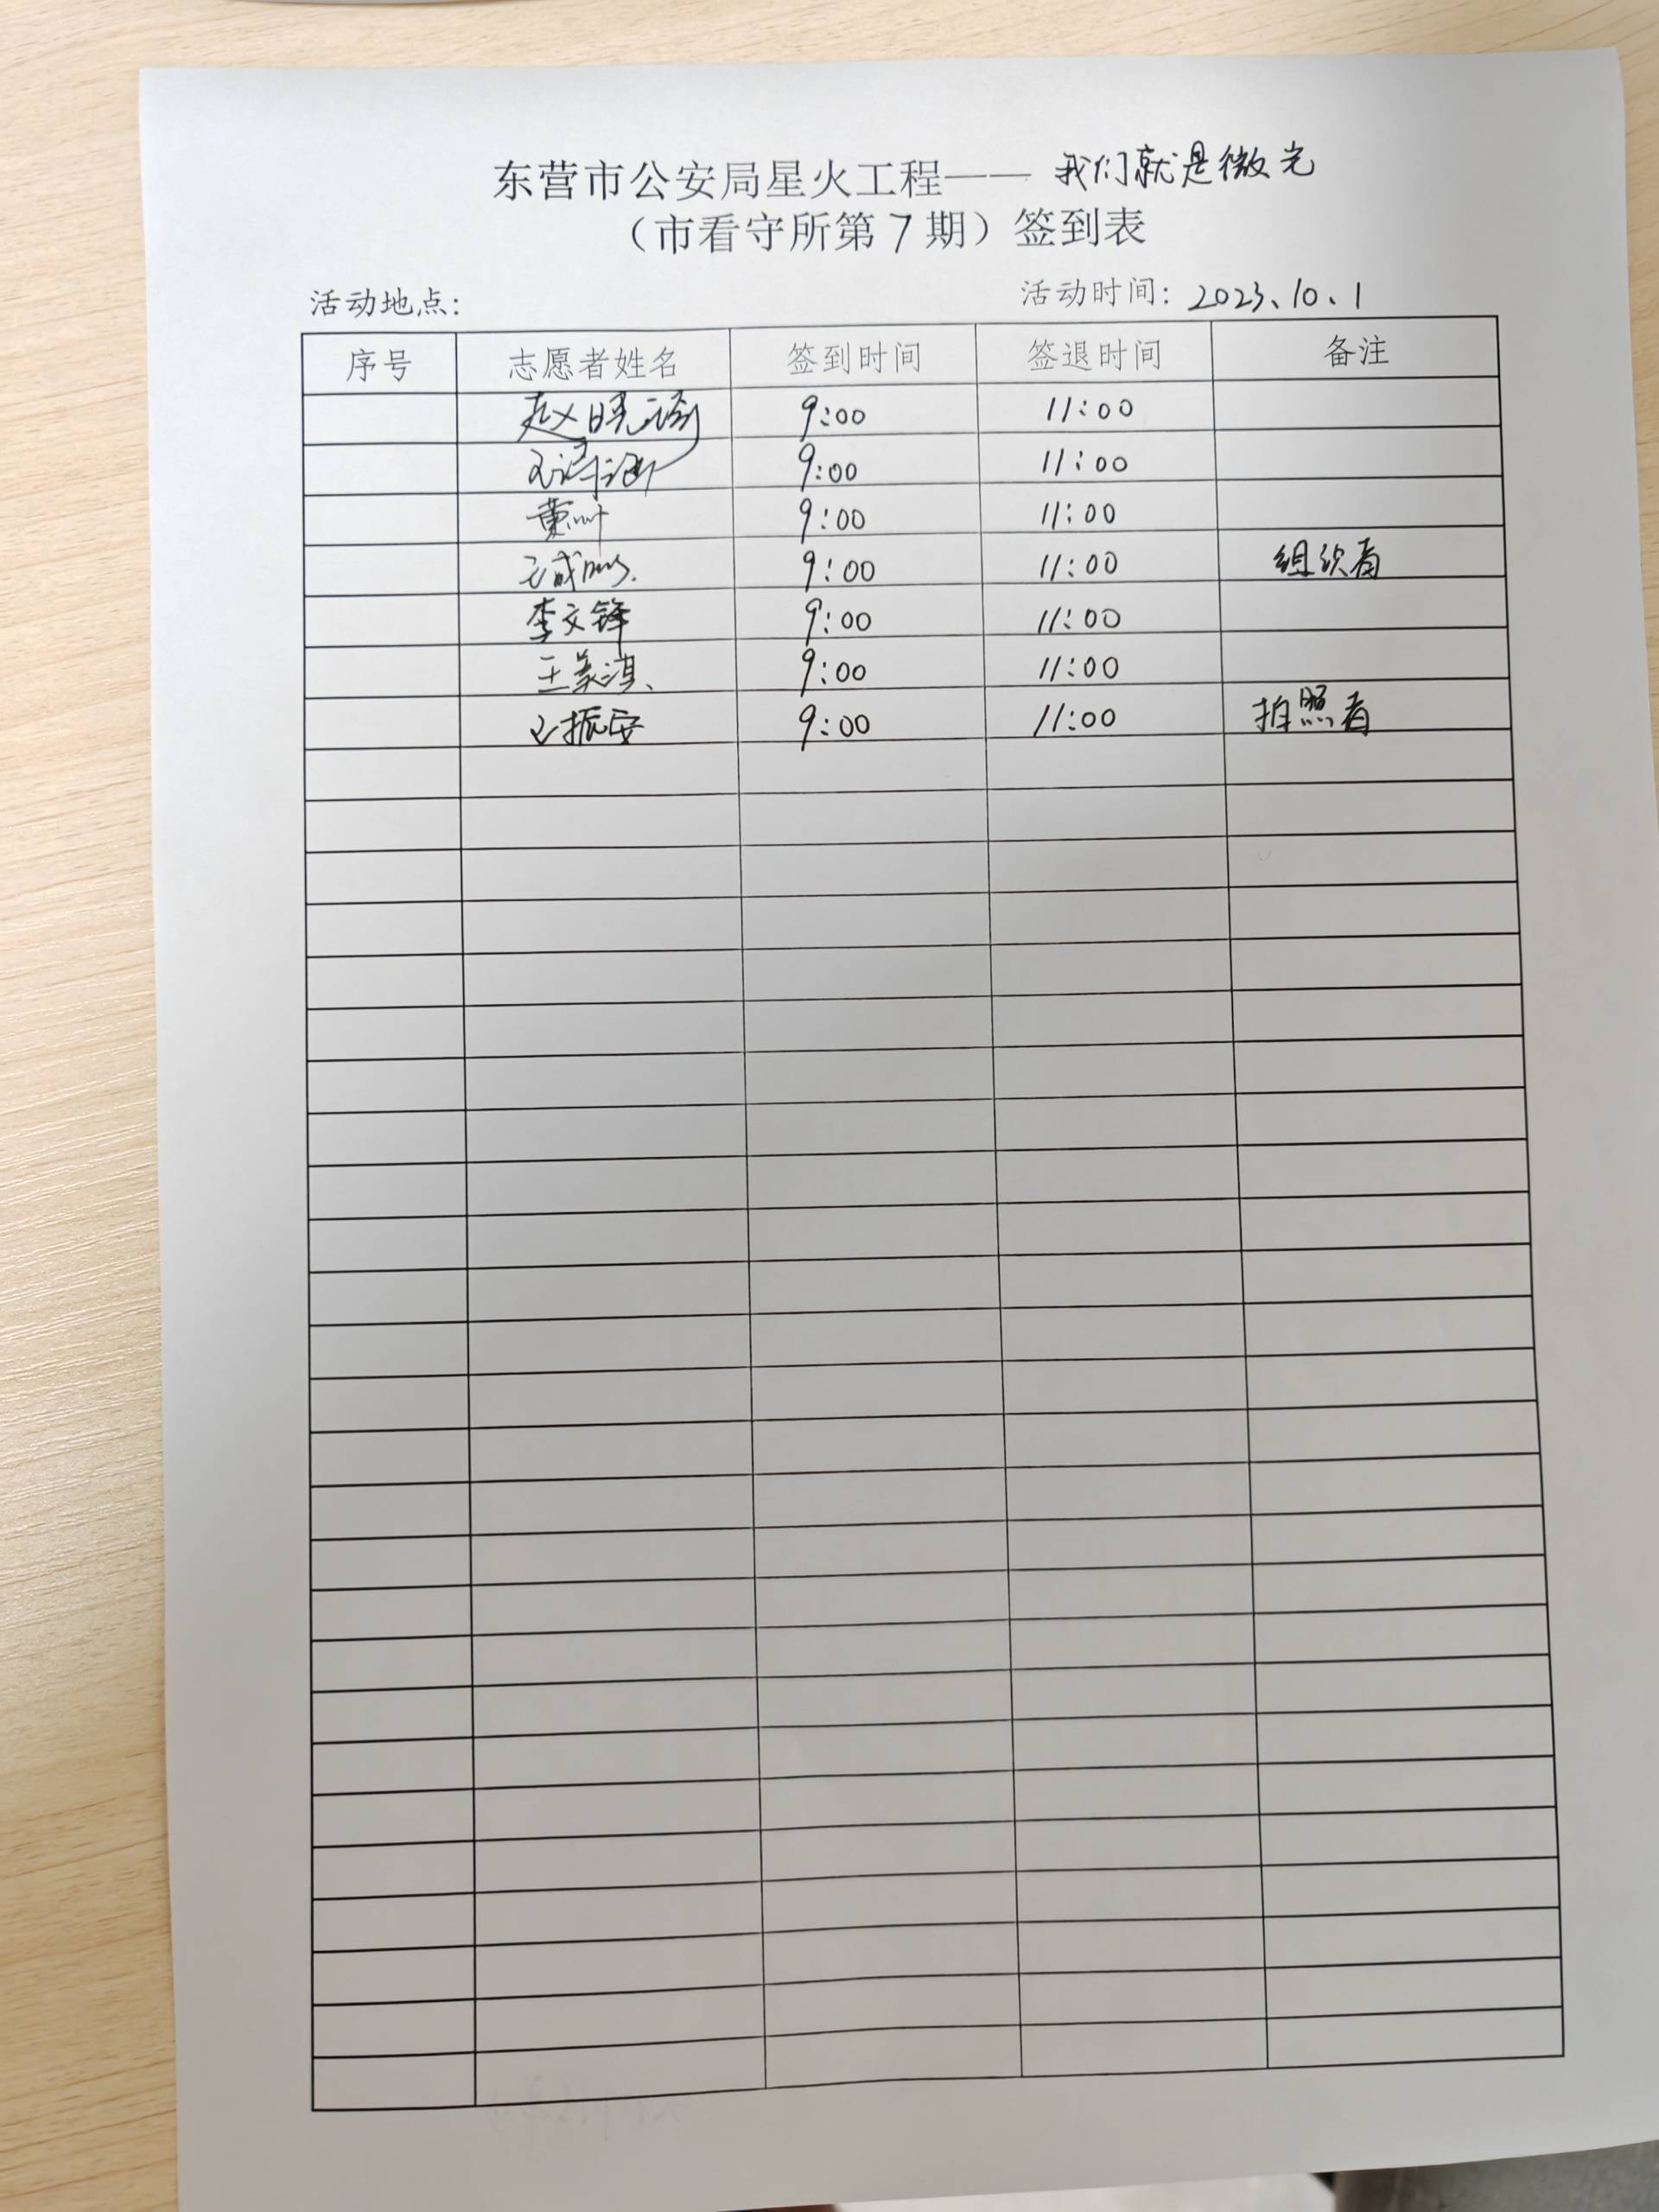 东营市公安局星火工程—— 我们就是微光
（市看守所第7期）签到表
活动地点： 活动时间：2023、10、1
序号 志愿者姓名 签到时间 签退时间 备注
赵晓 9:00 11:00
9:00 11:00
黄 9:00 11:00
王成 9:00 11:00 组织者
李文锋 9:00 11:00
王美淇 9:00 11:00
王振安 9:00 11:00 拍照者